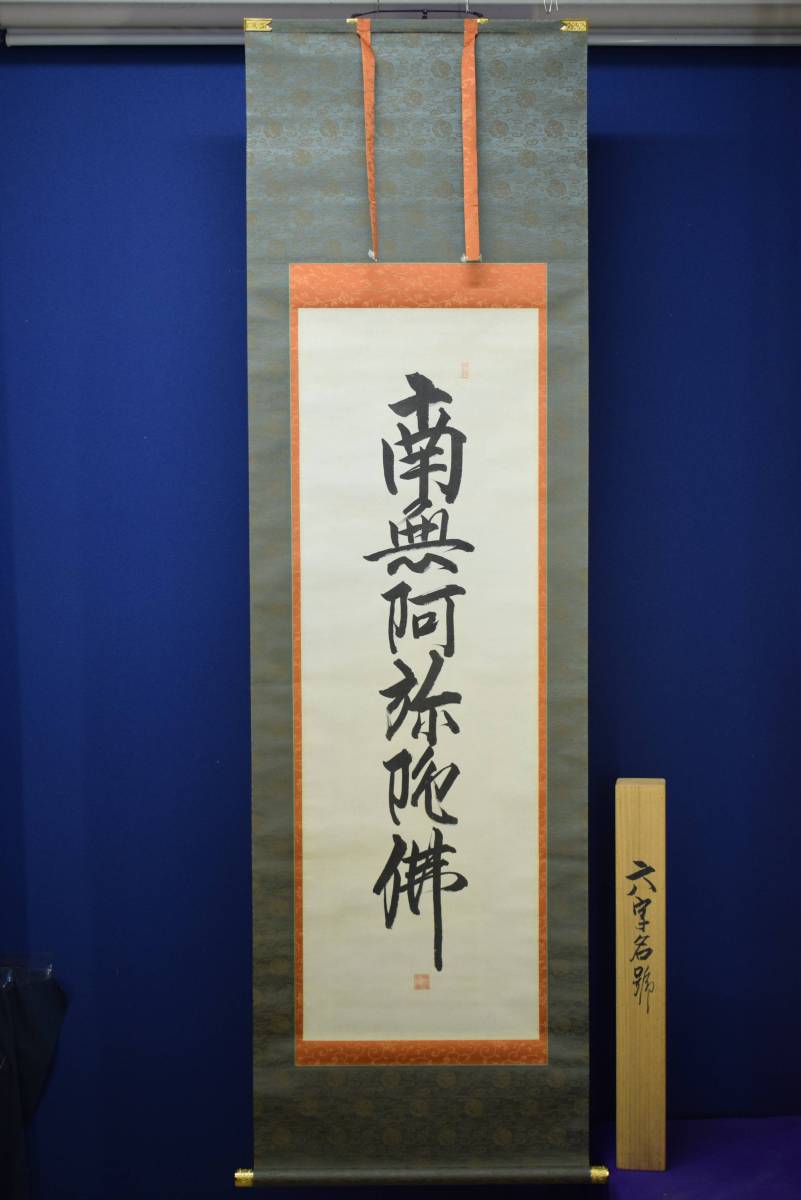 南無阿弥陀佛
六字名號